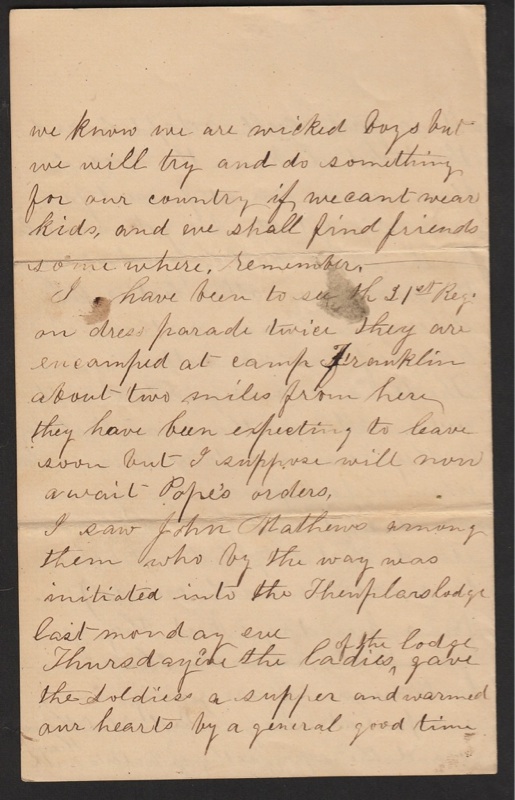 we know we are wicked boys but
we will try and do something
for our country if we cant wear
kids, and we shall find friends
some where, remember.
I have been to see th 31st Reg.
on dress parade twice they are
encamped at camp Franklin
about two miles from here,
they have been expecting to leave
soon but I suppose will now
await Pope's orders,
I saw John Mathews among
them who by the way was
initiated into the Themplars lodge
last monday eve
Thursday eve the ladies of the lodge gave
the soldies a supper and warmed
our hearts by a general good time